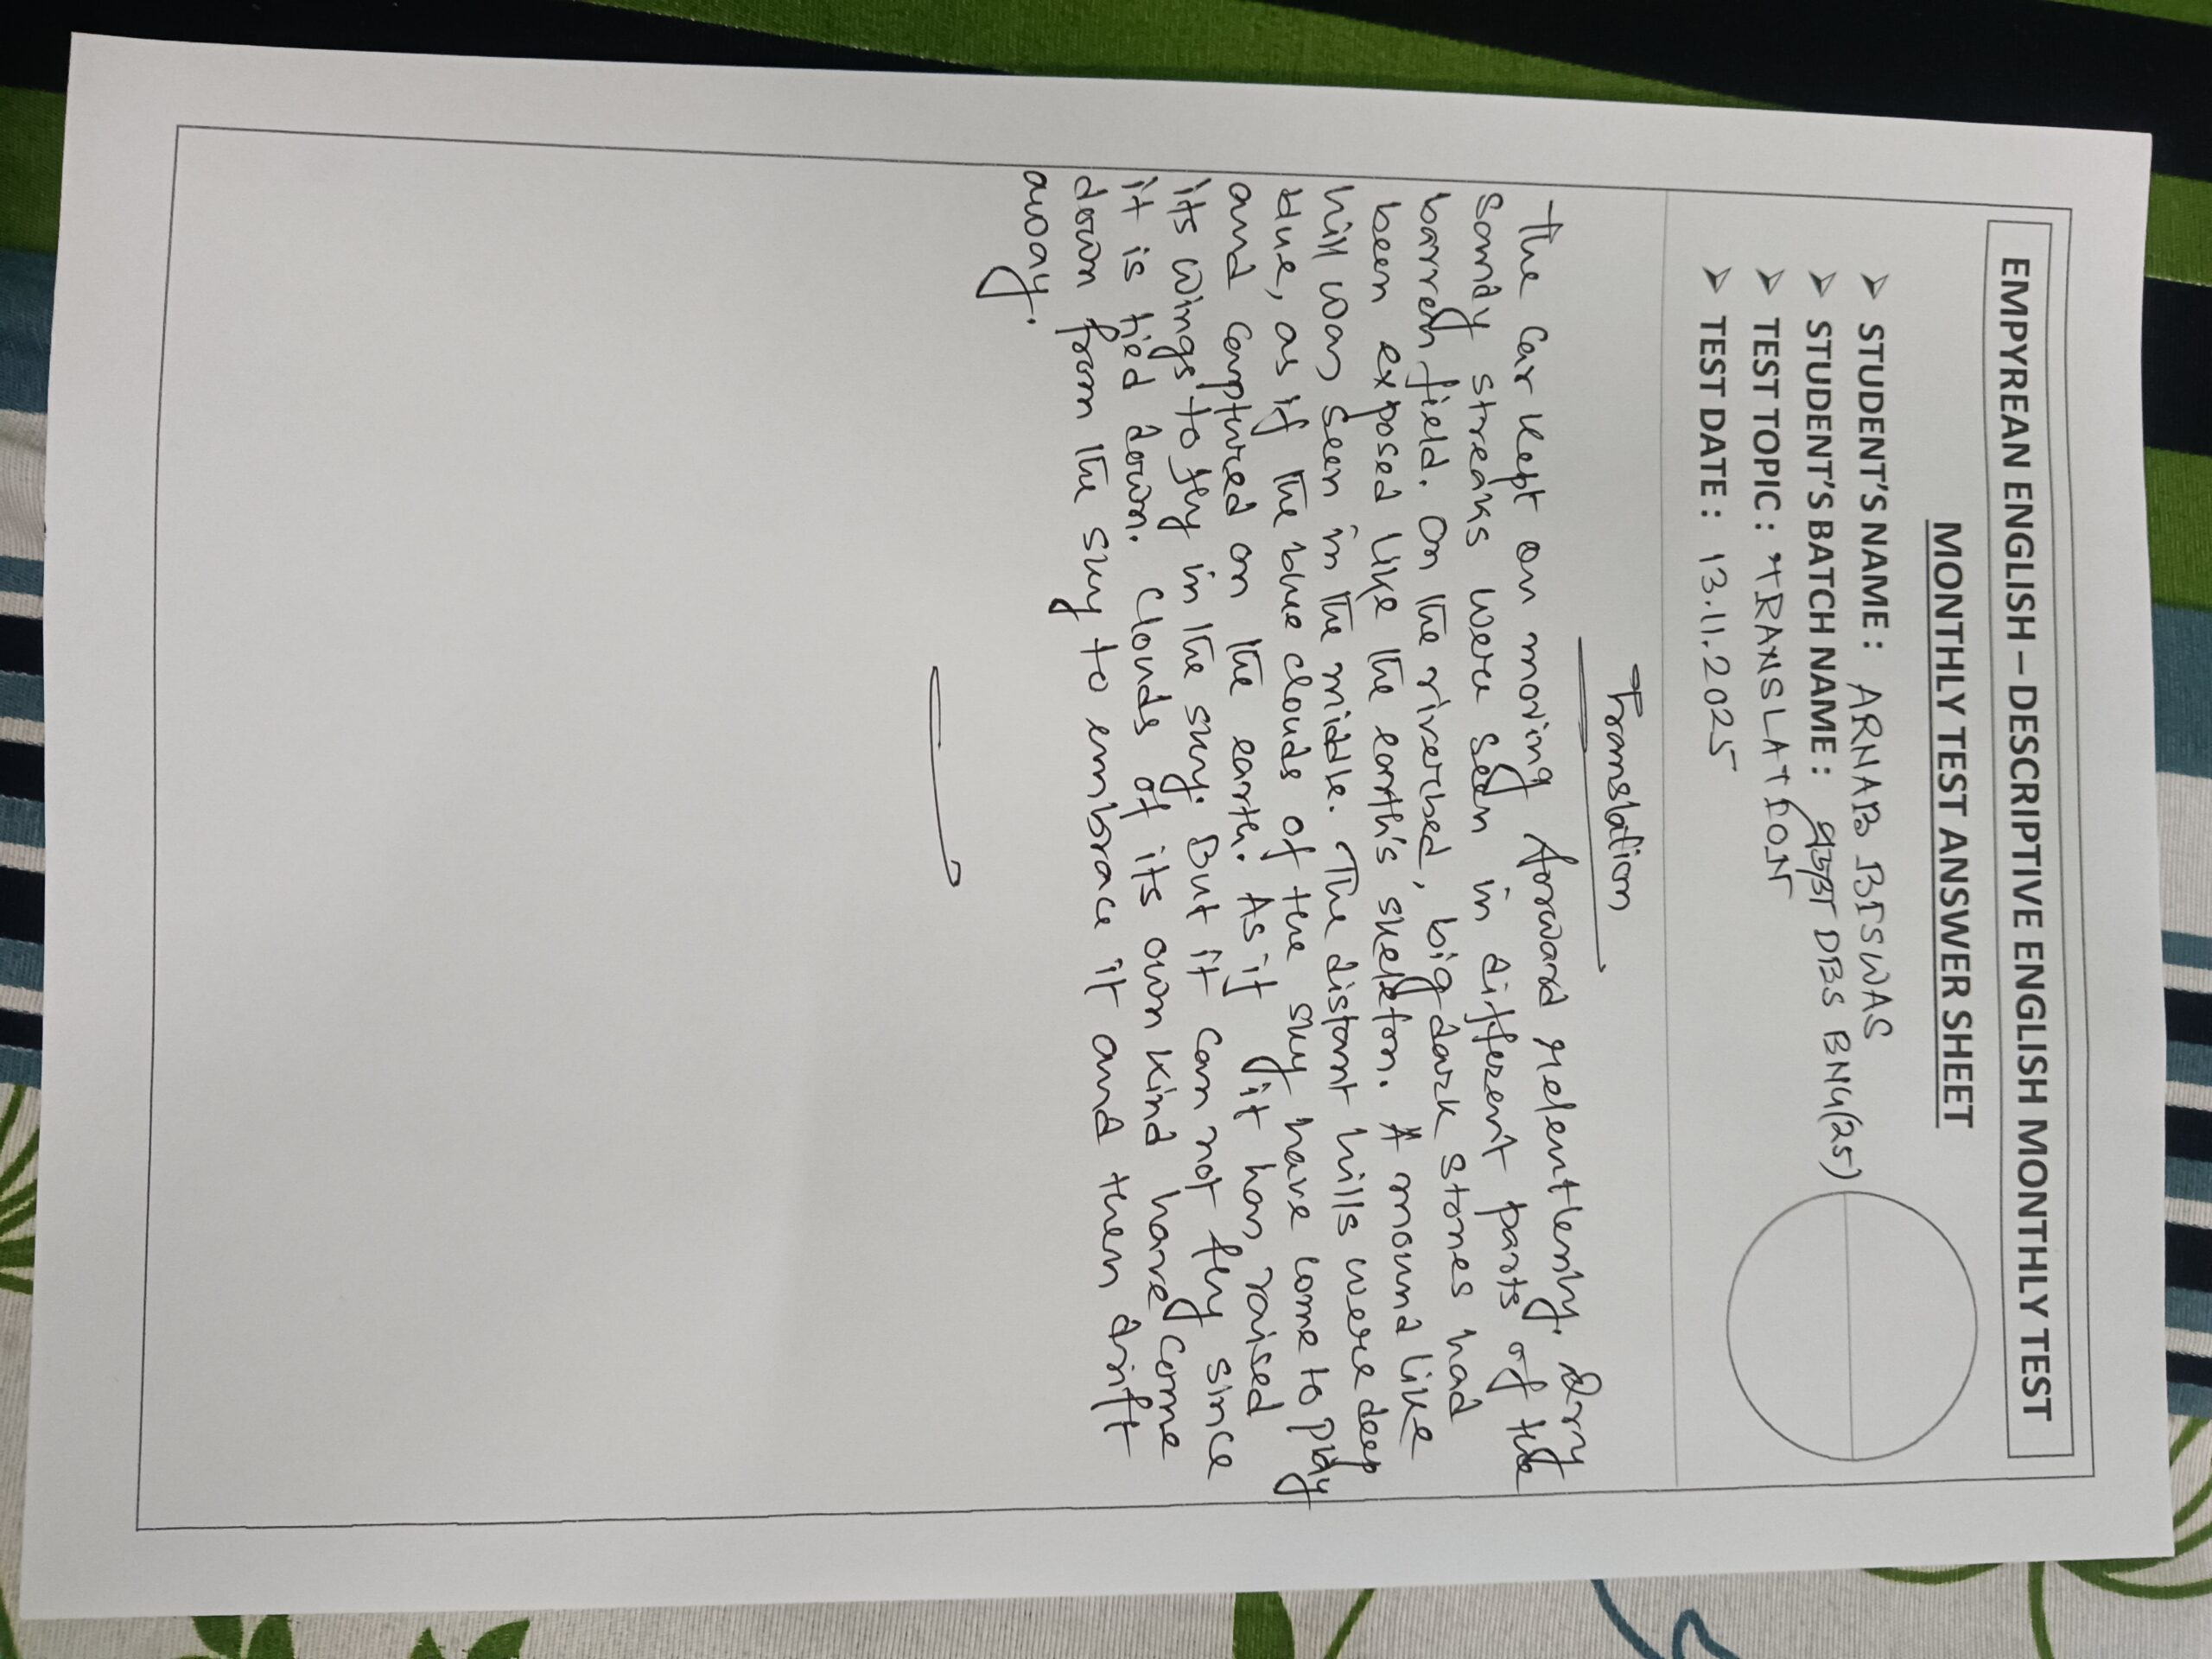 EMPYREAN ENGLISH – DESCRIPTIVE ENGLISH MONTHLY TEST
MONTHLY TEST ANSWER SHEET
➤ STUDENT'S NAME : ARNAB BISWAS
➤ STUDENT'S BATCH NAME : DBS BN4(25)
➤ TEST TOPIC : TRANSLATION
➤ TEST DATE : 13.11.2025
Translation
The car kept on moving forward relentlenly. Dry
sandy streaks were seen in different parts of the
barren field. On the riverbed, big dark stones had
been exposed like the earth's skeleton. A mound like
hill was seen in the middle. The distant hills were deep
blue, as if the blue clouds of the sky have come to play
and captured on the earth. As if it has raised
its wings to fly in the sky. But it can not fly since
it is tied down. Clouds of its own kind have come
down from the sky to embrace it and then drift
away.